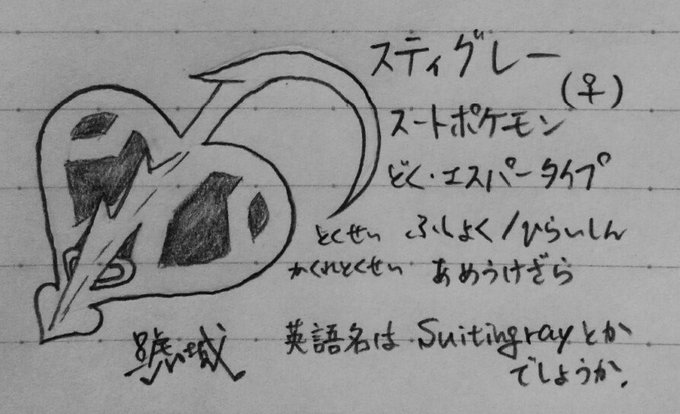 スティグレー
(♀)
スートポケモン
どく・エスパータイプ
とくせい ふしょく/ひらいしん
かくれとくせい あめうけざら
英語名は Suitingrayとか
でしょうか.